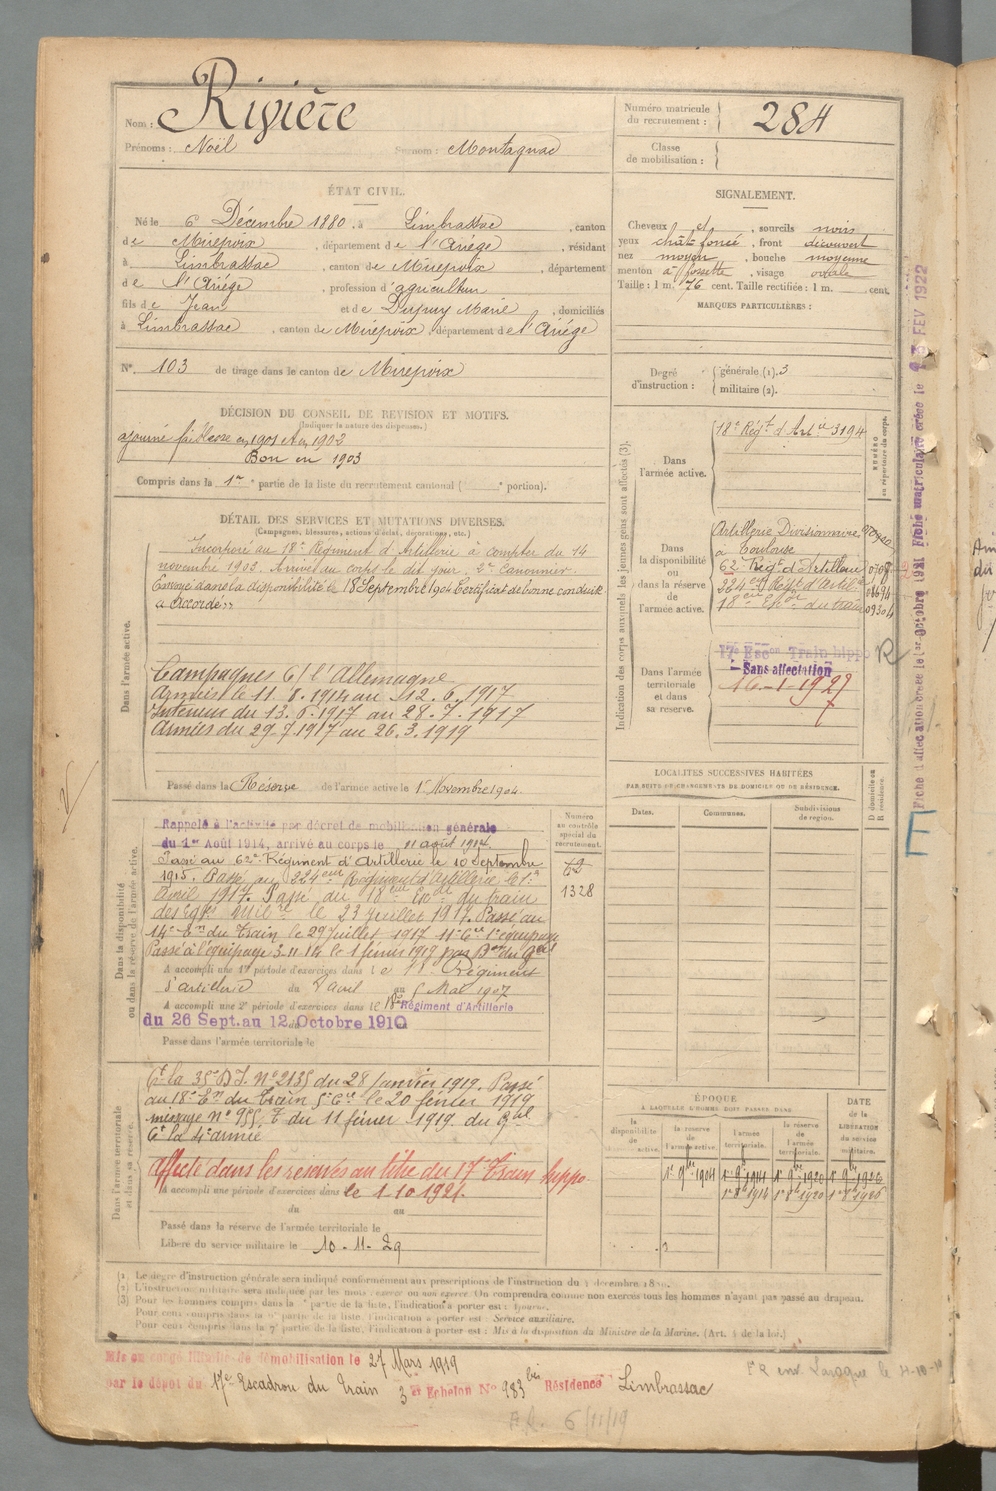 Nom : Rivière
Prénoms : Noël Surnom : Montagnac
Numéro matricule du recrutement : 284
Classe de mobilisation :
ÉTAT CIVIL.
Né le 6 Décembre 1880, à Limbrassac, canton
de Mirepoix, département de l'Ariège, résidant
à Limbrassac, canton de Mirepoix, département
de l'Ariège, profession d'agriculteur
fils de Jean et de Dupuy Marie, domiciliés
à Limbrassac, canton de Mirepoix, département de l'Ariège
N° 103 de tirage dans le canton de Mirepoix
SIGNALEMENT.
Cheveux et, sourcils noirs
yeux chât. foncé, front découvert
nez moyen, bouche moyenne
menton à fossette, visage ovale
Taille : 1 m. 76 cent. Taille rectifiée : 1 m. cent.
MARQUES PARTICULIÈRES :
Degré d'instruction : générale (1). 3
militaire (2).
DÉCISION DU CONSEIL DE REVISION ET MOTIFS.
(Indiquer la nature des dispenses.)
ajourné faiblesse en 1901 et en 1902
Bon en 1903
Compris dans la 1re partie de la liste du recrutement cantonal ( portion).
DÉTAIL DES SERVICES ET MUTATIONS DIVERSES.
(Campagnes, blessures, actions d'éclat, décorations, etc.)
Dans l'armée active.
Incorporé au 18e Régiment d'Artillerie à compter du 14
novembre 1903. Arrivé au corps le dit jour. 2e Canonnier.
Envoyé dans la disponibilité le 18 Septembre 1904 Certificat de bonne conduite
" Accordé "
Campagnes C/ l'Allemagne
Armées le 11.8.1914 au 12.6.1917
Intérieur du 13.6.1917 au 28.7.1917
Armées du 29.7.1917 au 26.3.1919
Passé dans la Réserve de l'armée active le 1er Novembre 1904.
Indication des corps auxquels les jeunes gens sont affectés (3).
NUMÉRO au répertoire du corps.
Dans l'armée active.
18e Régt d'Artie 3194
Dans la disponibilité ou dans la réserve de l'armée active.
Artillerie Divisionnaire
à Toulouse
62e Régt d'Artillerie
224e Régt d'Artie
18e Eson du train 09304
Dans l'armée territoriale et dans sa réserve.
17e Escon Train hippo R
Sans affectation
16-1-1927
LOCALITÉS SUCCESSIVES HABITÉES
PAR SUITE DE CHANGEMENTS DE DOMICILE OU DE RÉSIDENCE.
Dates.
Communes.
Subdivisions de région.
D domicile ou R résidence.
Dans la disponibilité ou dans la réserve de l'armée active.
Numéro au contrôle spécial du recrutement.
1328
Rappelé à l'activité par décret de mobilisation générale
du 1er Août 1914, arrivé au corps le 11 août 1914.
Passé au 62e Régiment d'Artillerie le 10 Septembre
1915. Passé au 224eme Régiment d'Artillerie le 1er
Avril 1917. Passé au 18eme Eson du train
des Eqges Milres le 23 Juillet 1917. Passé au
14e Eon du Train le 29 Juillet 1917
A accompli une 1re période d'exercices dans le 18e Régiment
d'artillerie du 8 avril au 5 Mai 1907
A accompli une 2e période d'exercices dans le 18e Régiment d'Artillerie
du 26 Sept. au 12 Octobre 1910
Passé dans l'armée territoriale le
Dans l'armée territoriale et dans sa réserve.
Ct la 35e D.I. N° 2135 du 28 Janvier 1919. Passé
au 18e Eon du Train 5e Cie le 20 février 1919
message n° 955. T du 11 février 1919 du Gal
Ct la 4e armée
Affecté dans les réserves au titre du 17e Train hippo
A accompli une période d'exercices dans le 1.10.1921.
du au
Passé dans la réserve de l'armée territoriale le
Libéré du service militaire le 10-11-29
ÉPOQUE
A LAQUELLE L'HOMME DOIT PASSER DANS
la disponibilité de
la réserve de l'armée active.
l'armée territoriale.
la réserve de l'armée territoriale.
DATE de la LIBÉRATION du service militaire.
1er 9bre 1904 1er 9bre 1914 1er 9bre 1920 1er 9bre 1926
1er 8bre 1914 1er 8bre 1920 1er 8bre 1926
(1) Le degré d'instruction générale sera indiqué conformément aux prescriptions de l'instruction du 4 décembre
(2) L'instruction militaire sera indiquée par les mots : exercé ou non exercé. On comprendra comme non exercés tous les hommes n'ayant pas passé au drapeau.
(3) Pour les hommes compris dans la partie de la liste, l'indication à porter est : Ajourné.
Pour ceux compris dans la partie de la liste, l'indication à porter est : Service auxiliaire.
Pour ceux compris dans la 7e partie de la liste, l'indication à porter est : Mis à la disposition du Ministre de la Marine. (Art. 4 de la loi.)
Mis en congé illimité de démobilisation le 27 Mars 1919
par le dépôt du 17e Escadron du Train 3e Echelon N° 983 bis Résidence Limbrassac
6/11/19
F
Fiche d'affectation créée le 1er octobre 1921 Fiche matriculaire créée le FEV 1922